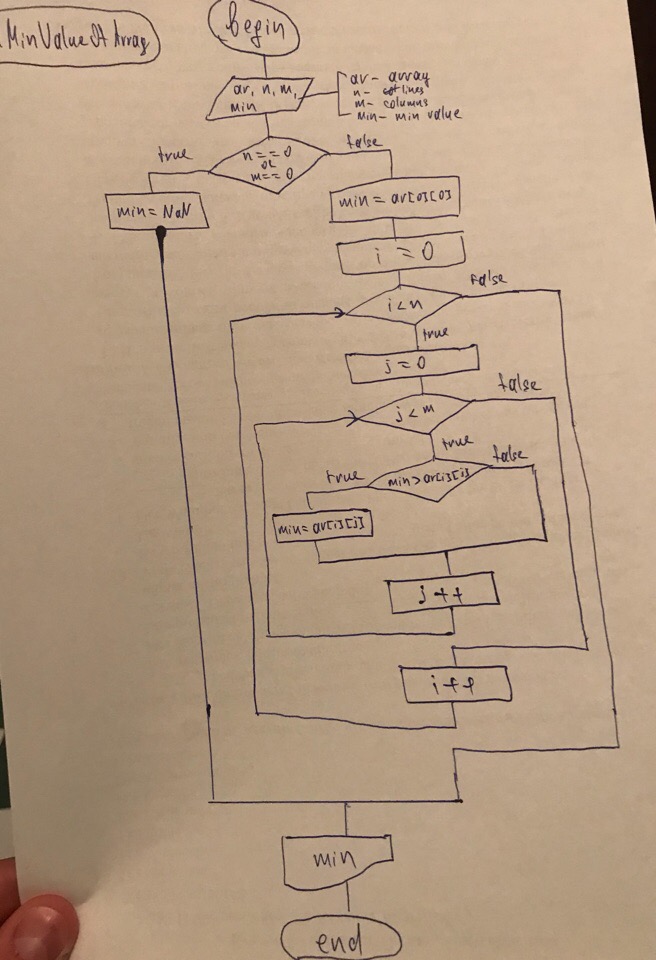 MinValueOfArray
begin
ar, n, m,
min
ar - array
n - lines
m - columns
min - min value
true
false
n == 0
or
m == 0
min = NaN
min = ar[0][0]
i = 0
i < n
false
true
j = 0
j < m
false
true
min > ar[i][j]
true
false
min = ar[i][j]
j++
i++
min
end